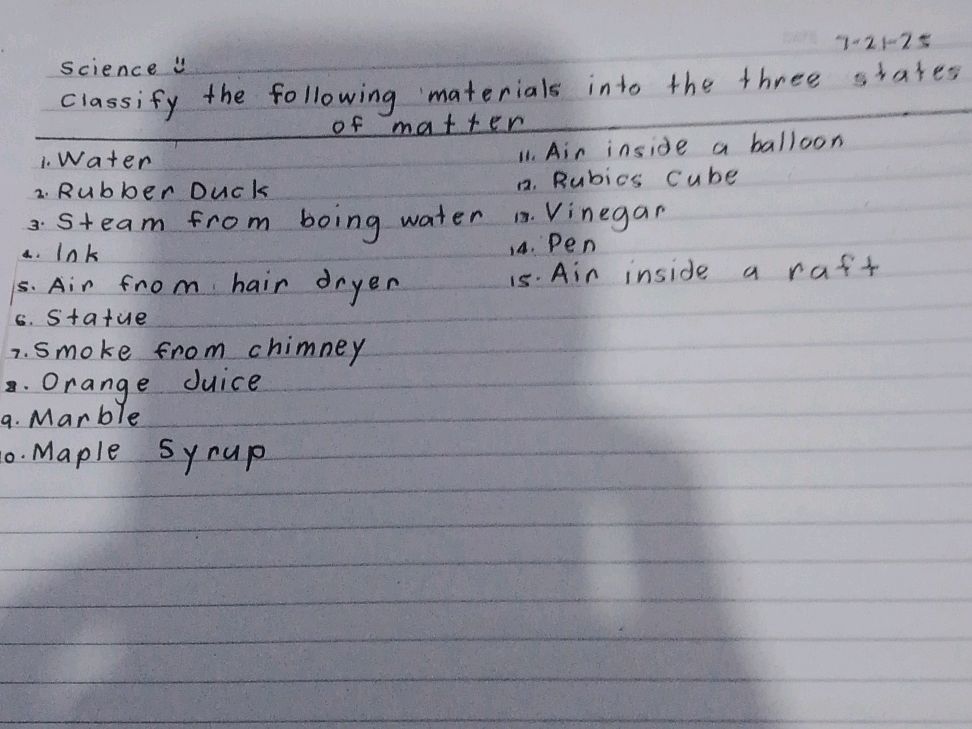 7-21-25
Science
Classify the following materials into the three states
of matter
1. Water
2. Rubber Duck
3. Steam from being water
4. Ink
5. Air from hair dryer
6. Statue
7. Smoke from chimney
8. Orange Juice
9. Marble
10. Maple Syrup
11. Air inside a balloon
12. Rubics Cube
13. Vinegar
14. Pen
15. Air inside a raft